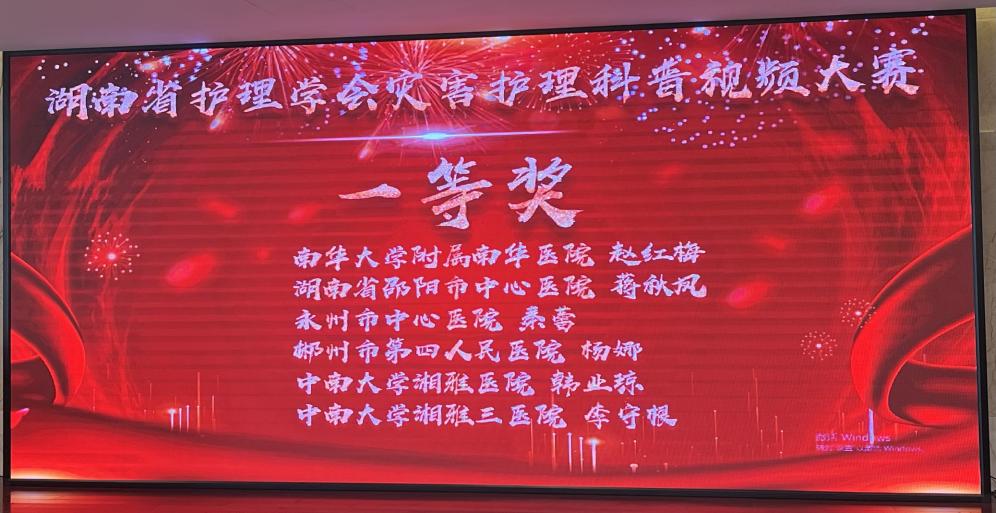 湖南省护理学会灾害护理科普视频大赛
一等奖
南华大学附属南华医院 赵红梅
湖南省邵阳市中心医院 蒋秋凤
永州市中心医院 秦蕾
郴州市第四人民医院 杨娜
中南大学湘雅医院 韩业琼
中南大学湘雅三医院 李守恨
激活 Windows
转到"设置"以激活 Windows。